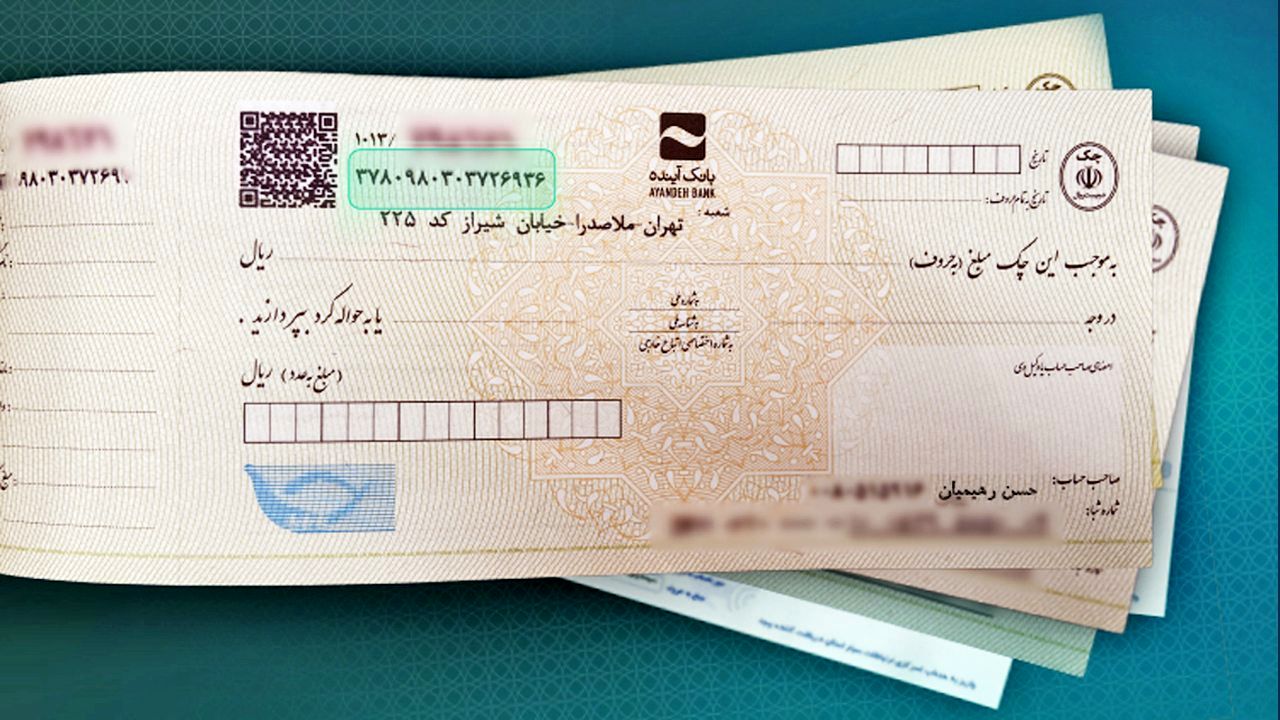 ۱۰۱۳/
۳۷۸۰۹۸۰۳۰۳۷۲۶۹۳۶
۹۸۰۳۰۳۷۲۶۹
بانک آینده
AYANDEH BANK
شعبه:
تهران-ملاصدرا-خیابان شیراز کد ۲۲۵
چک
تاریخ
تاریخ به تمام حروف:
به موجب این چک مبلغ (به حروف)
ریال
در وجه
به شماره ملی
به شناسه ملی
به شماره اختصاصی اتباع خارجی
یا به حواله کرد بپردازند.
(مبلغ به عدد) ریال
امضای صاحب حساب یا وکیل وی
صاحب حساب:
حسن رهیمیان
شماره شبا: